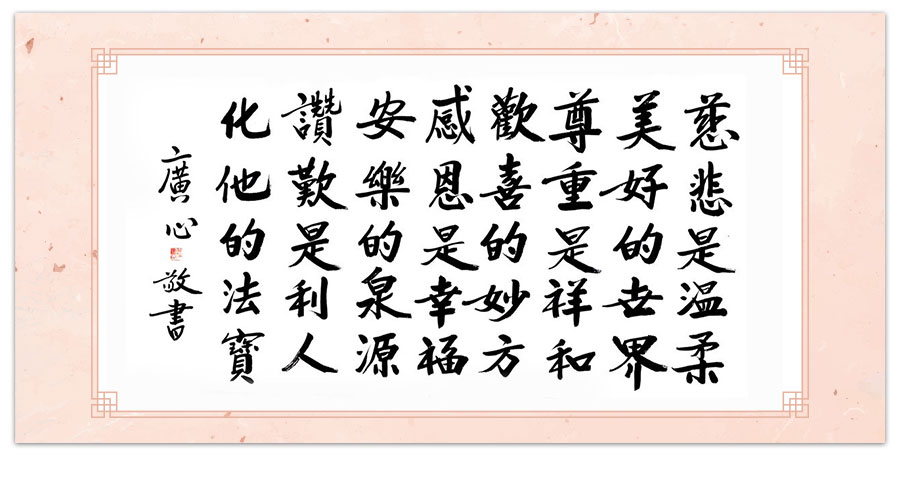 慈悲是温柔
美好的世界
尊重是祥和
歡喜的妙方
感恩是幸福
安樂的泉源
讚歎是利人
化他的法寶
廣心敬書